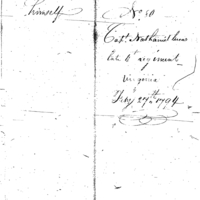 himself
No. 50
Capt. Nathaniel
late 4th regiment
Virginia
Feby 27th 1794